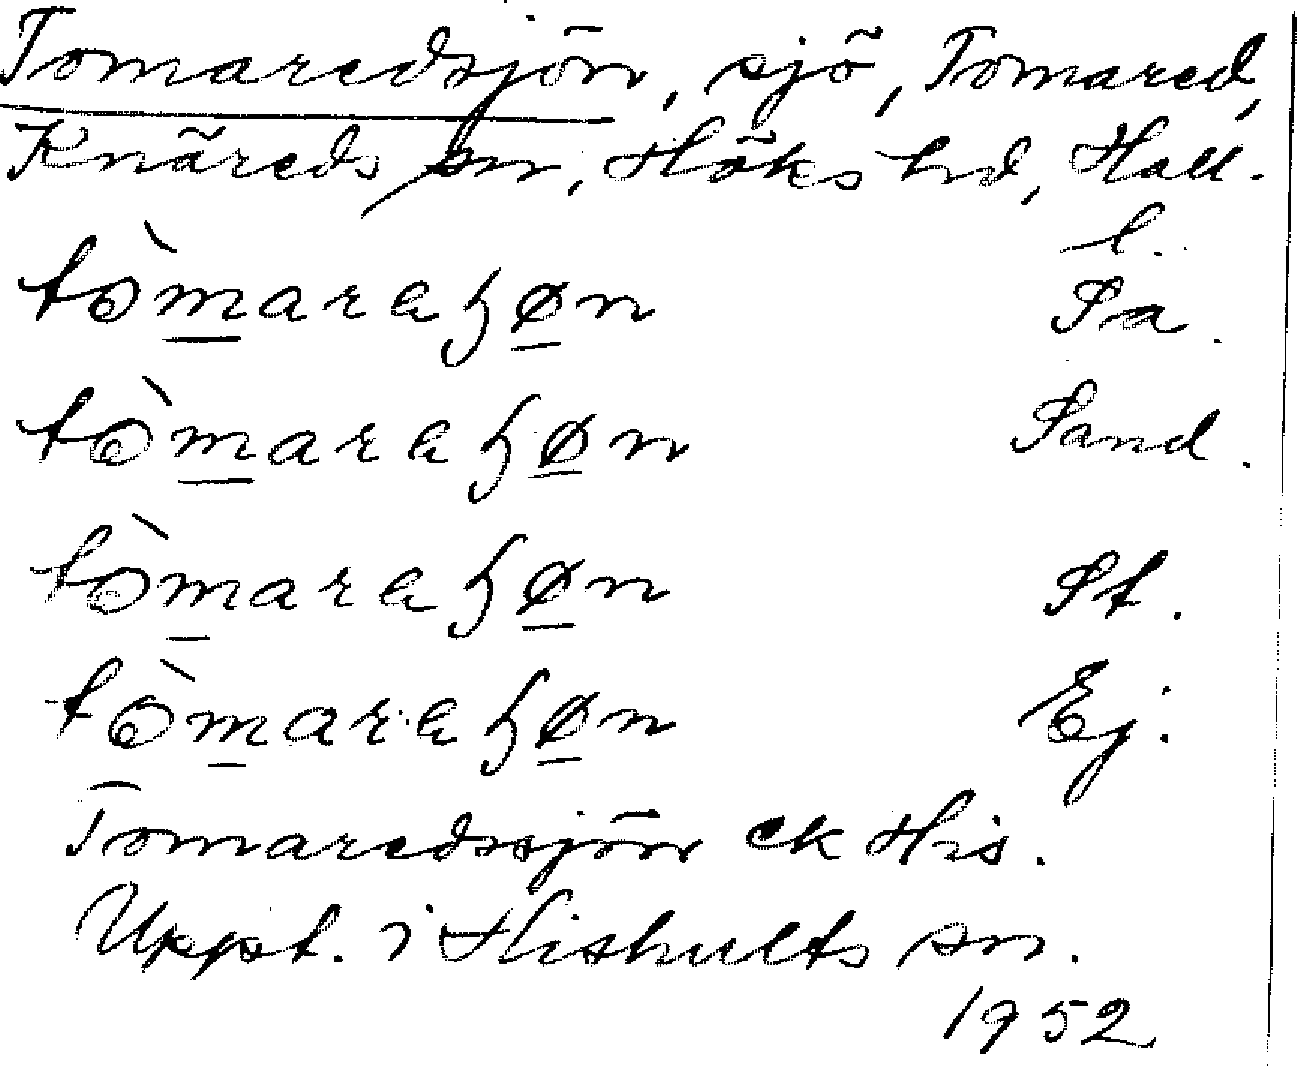 Tomaredsjön, sjö, Tomared,
Knäreds sn, Höks hd, Hall.
l.
tòmaraꜧøn Pa.
tòmaraꜧøn Sand.
tòmaraꜧøn St.
tòmaraꜧøn Ej.
Tomaredssjön ek His.
Uppt. i Hishults sn.
1952